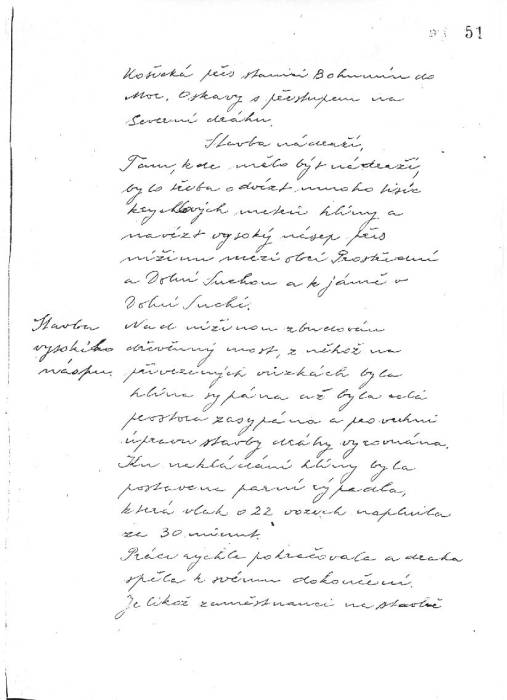 51
Košická přes stanici Bohumín do
Mor. Ostravy s přestupem na
Severní dráhu.
Stavba nádraží.
Tam, kde mělo být nádraží,
bylo třeba odvézt mnoho tisíc
krychlových metrů hlíny a
navézt vysoký násep přes
nížinu mezi obcí Prostřední
a Dolní Suchou a k jámě v
Dolní Suché.
Stavba
vysokého
náspu.
Nad nížinou zbudován
dřevěnný most, z něhož na
přivezených vozíkách byla
hlína sypána až byla celá
prostora zasypána a po vrchní
úpravu stavby dráhy vyrovnána.
Ku nakládání hlíny byla
postavena parní rýpadla,
která vlak o 22 vozech naplnila
za 30 minut.
Práce rychle pokračovala a dráha
spěla k svému dokončení.
Jelikož zaměstnanci na stavbě